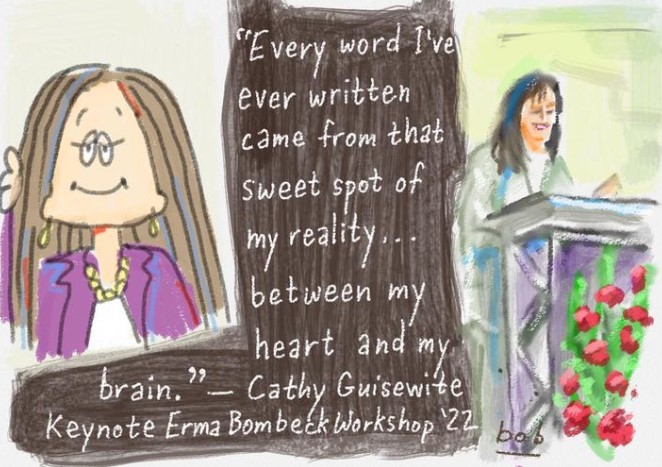 “Every word I've
ever written
came from that
sweet spot of
my reality...
between my
heart and my
brain.” — Cathy Guisewite
Keynote Erma Bombeck Workshop '22
bob